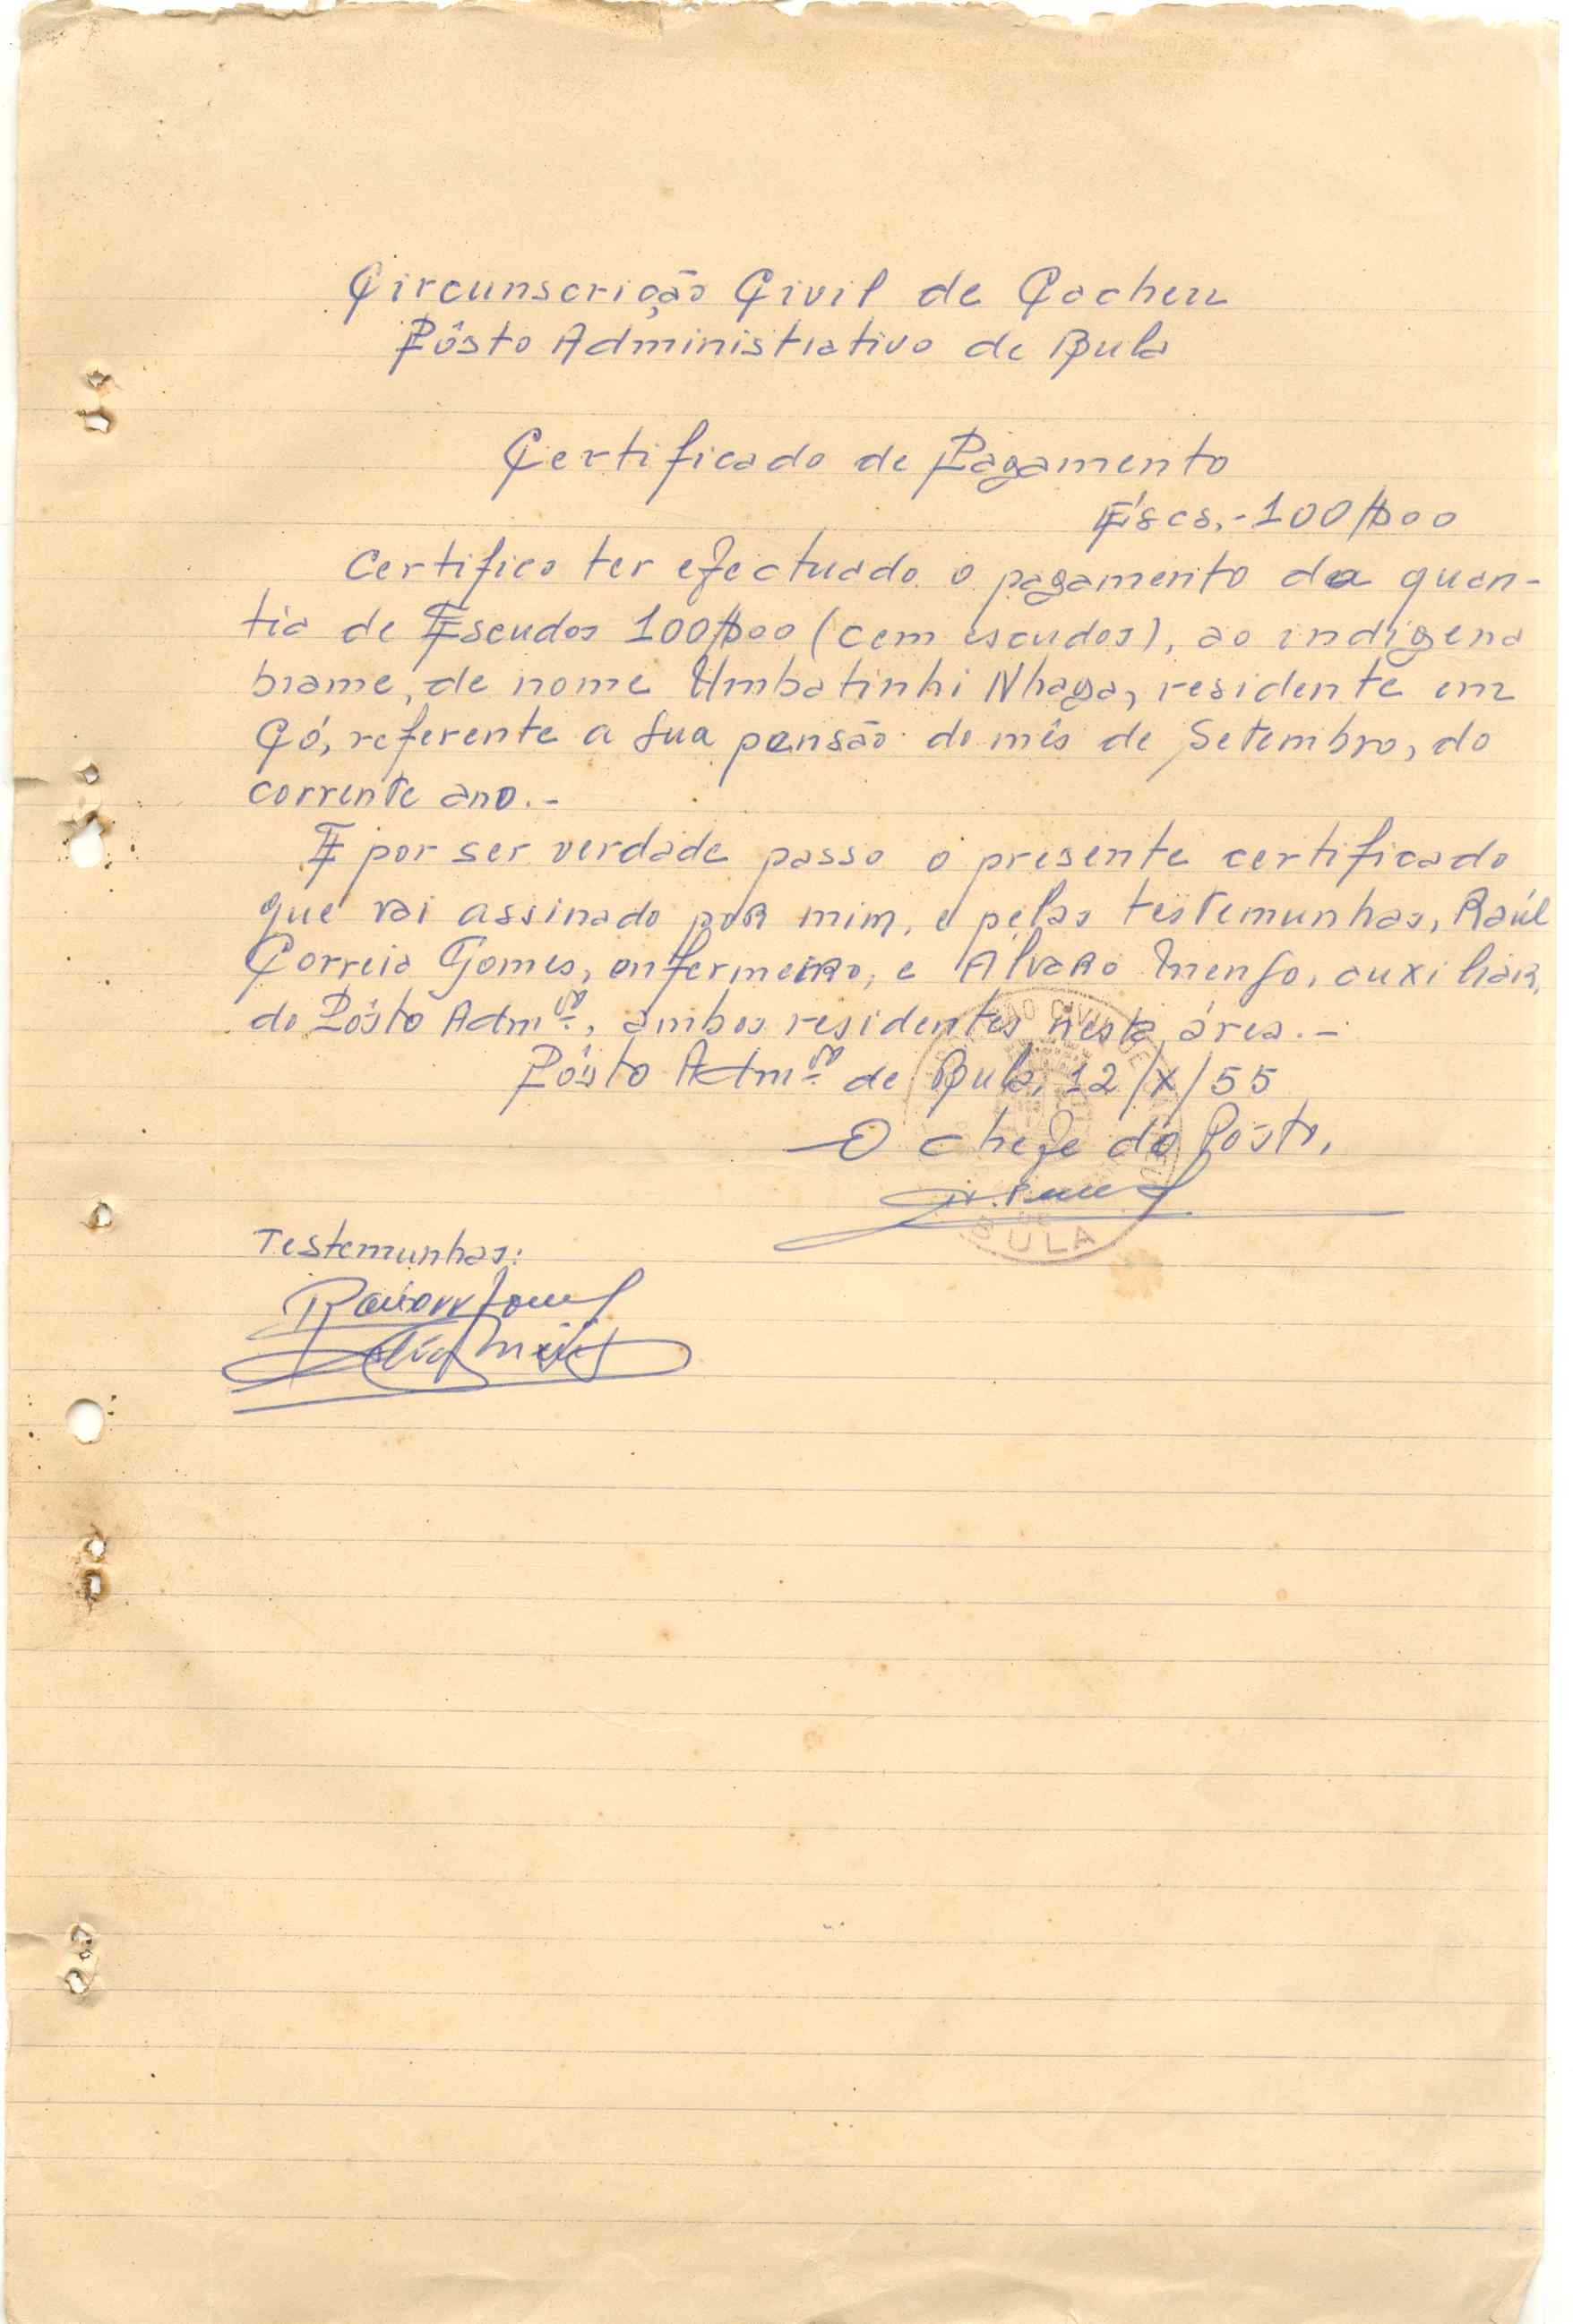 Circunscrição Civil de Cacheu
Pôsto Administrativo de Bula
Certificado de Pagamento
Escs.-100$00
Certifico ter efectuado o pagamento da quan-
tia de Escudos 100$00 (cem escudos), ao indígena
brame, de nome Umbatinhi Nhaga, residente em
Có, referente a sua pensão do mês de Setembro, do
corrente ano.-
E por ser verdade passo o presente certificado
que vai assinado por mim, e pelas testemunhas, Raúl
Correia Gomes, enfermeiro, e Alvaro, auxiliar,
do Pôsto Admº., ambos residentes nesta área.-
Pôsto Admº. de Bula, 12/X/55
O chefe do Pôsto,
BULA
Testemunhas: